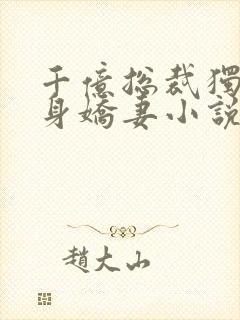 千億总裁獨
身嬌妻小說
趙大山